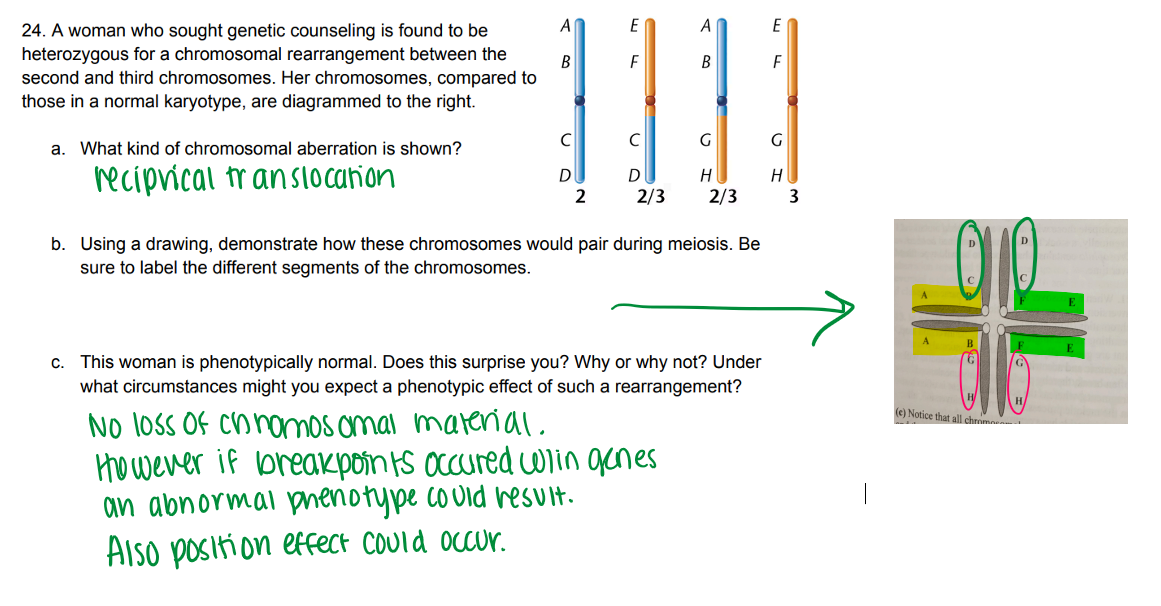 24. A woman who sought genetic counseling is found to be
heterozygous for a chromosomal rearrangement between the
second and third chromosomes. Her chromosomes, compared to
those in a normal karyotype, are diagrammed to the right.
A E A E
B F B F
C C G G
D D H H
2 2/3 2/3 3
a. What kind of chromosomal aberration is shown?
reciprical translocation
b. Using a drawing, demonstrate how these chromosomes would pair during meiosis. Be
sure to label the different segments of the chromosomes.
D D
C C
A B F E
A B F E
G G
H H
(c) Notice that all chromosom
c. This woman is phenotypically normal. Does this surprise you? Why or why not? Under
what circumstances might you expect a phenotypic effect of such a rearrangement?
No loss of chromosomal material.
However if breakpoints occured w/in genes
an abnormal phenotype could result.
Also position effect could occur.